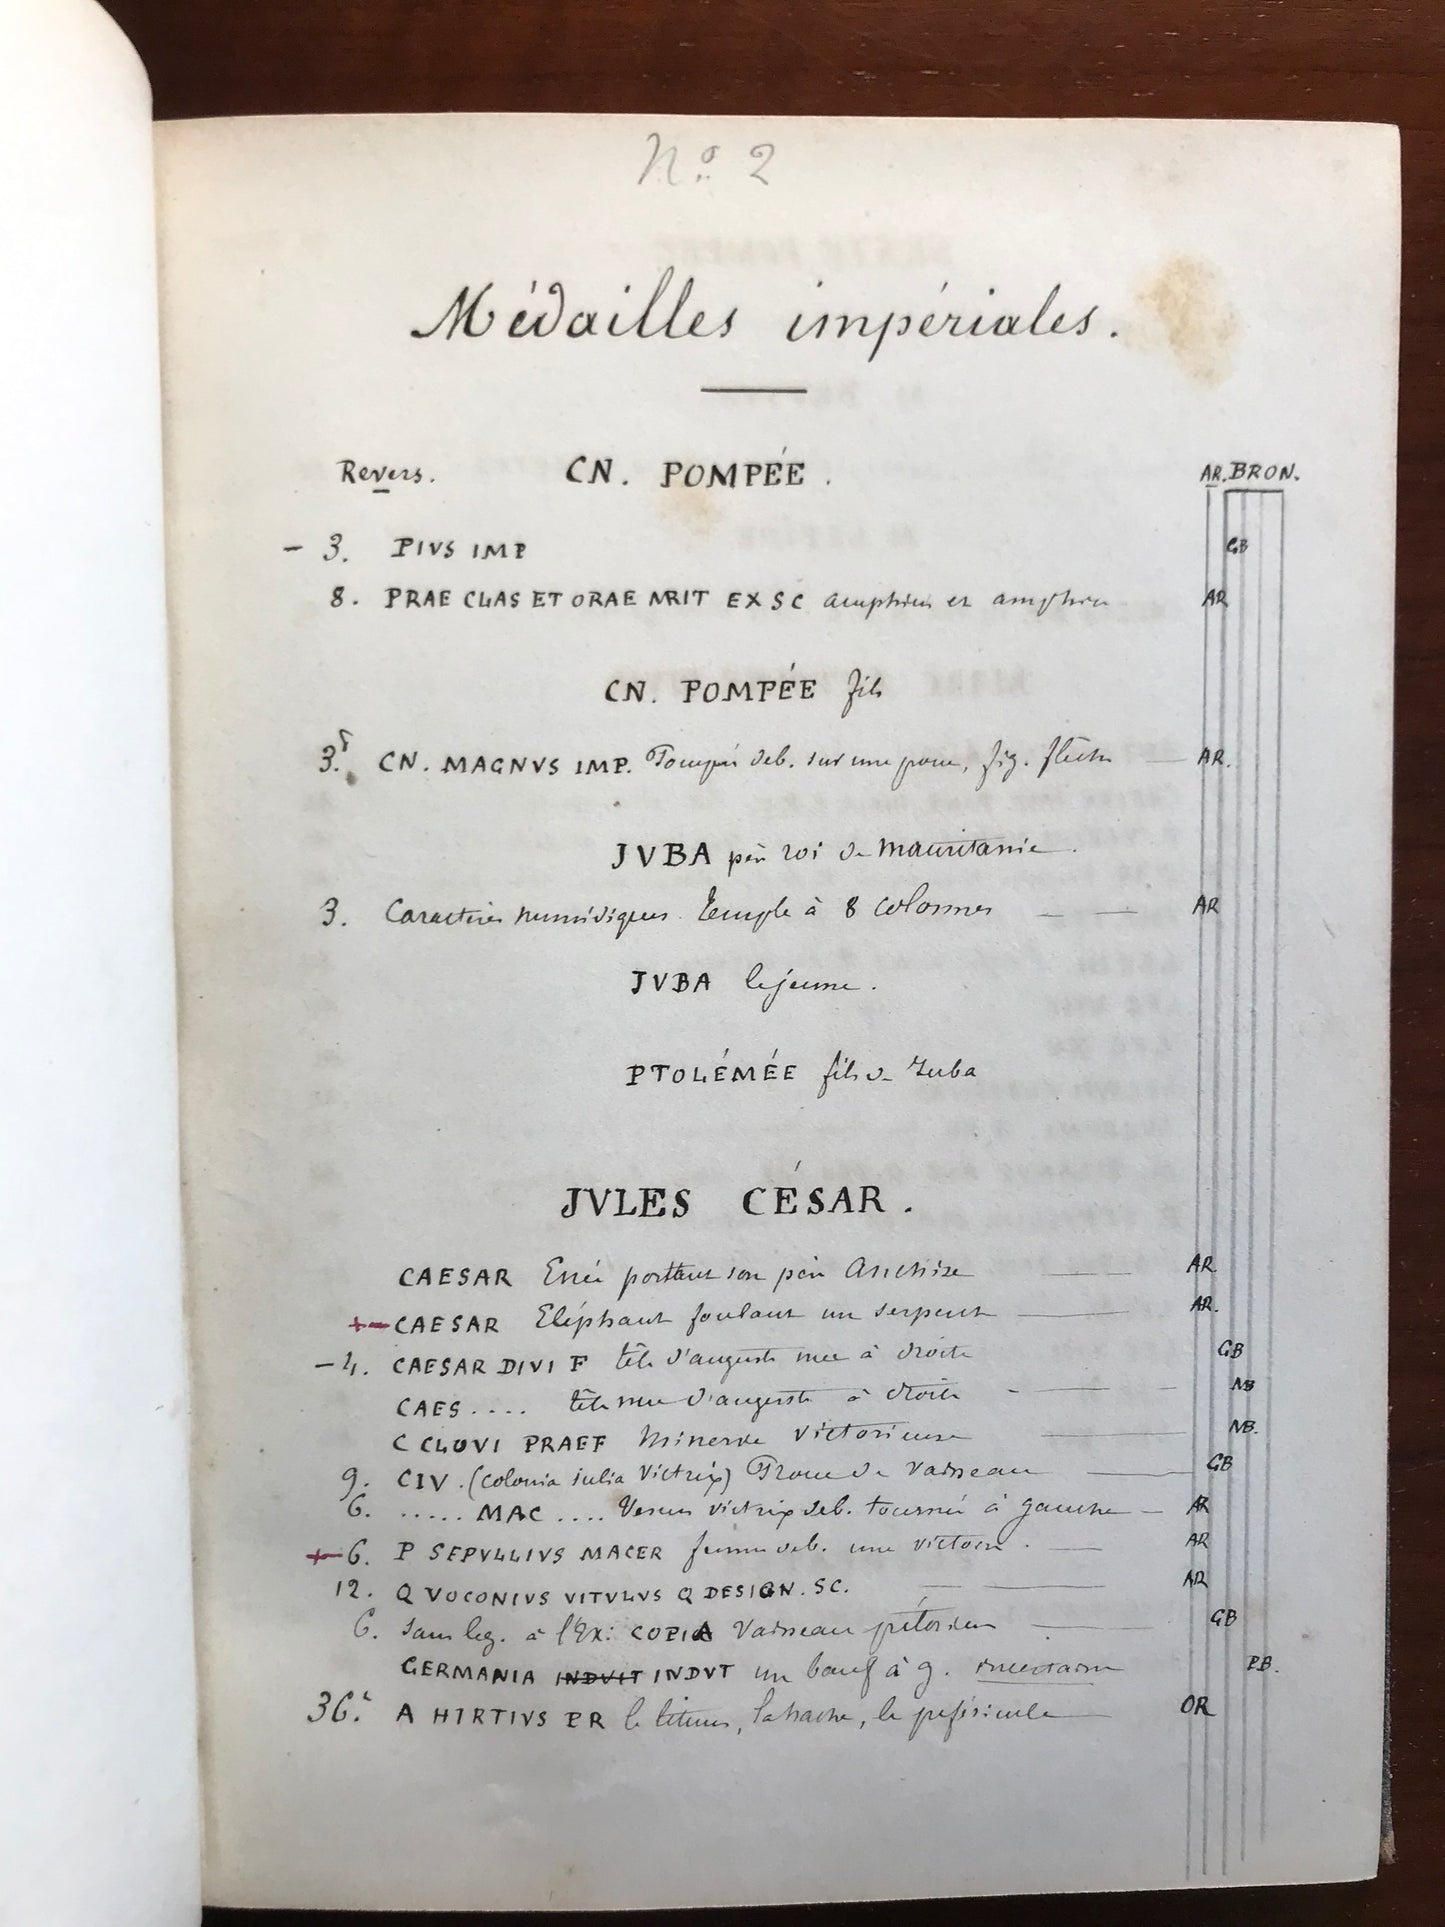 Nº 2
Médailles impériales.
Revers. CN. POMPÉE. AR. BRON.
- 3. PIVS IMP GB
8. PRAE CLAS ET ORAE MRIT EX SC amphin et amphin AR
CN. POMPÉE fils
3.f CN. MAGNVS IMP. Pompée deb. sur une proue, fig. AR.
JVBA père roi de Mauritanie.
3. Caractères numidiques. Temple à 8 colonnes AR
JVBA le jeune.
PTOLÉMÉE fils de Juba
JVLES CÉSAR.
CAESAR Enée portant son père Anchise AR.
+- CAESAR Eléphant foulant un serpent AR.
- 4. CAESAR DIVI F tête d'auguste nue à droite GB
CAES.... tête nue d'auguste à droite MB
C CLOVI PRAEF Minerve victorieuse MB.
9. CIV. (colonia iulia Victrix) Proue de vaisseau GB
6. ..... MAC .... Venus victrix deb. tournée à gauche AR
+- 6. P SEPVLLIVS MACER femme deb. une victoire. AR
12. Q VOCONIVS VITVLVS Q DESIGN. SC. AR
6. Sans leg. à l'Ex: COPIA Vaisseau prétorien GB
GERMANIA INDVIT INDVT un boeuf à g. incertaine PB.
36.c A HIRTIVS PR le lituus, la hache, le préféricule OR